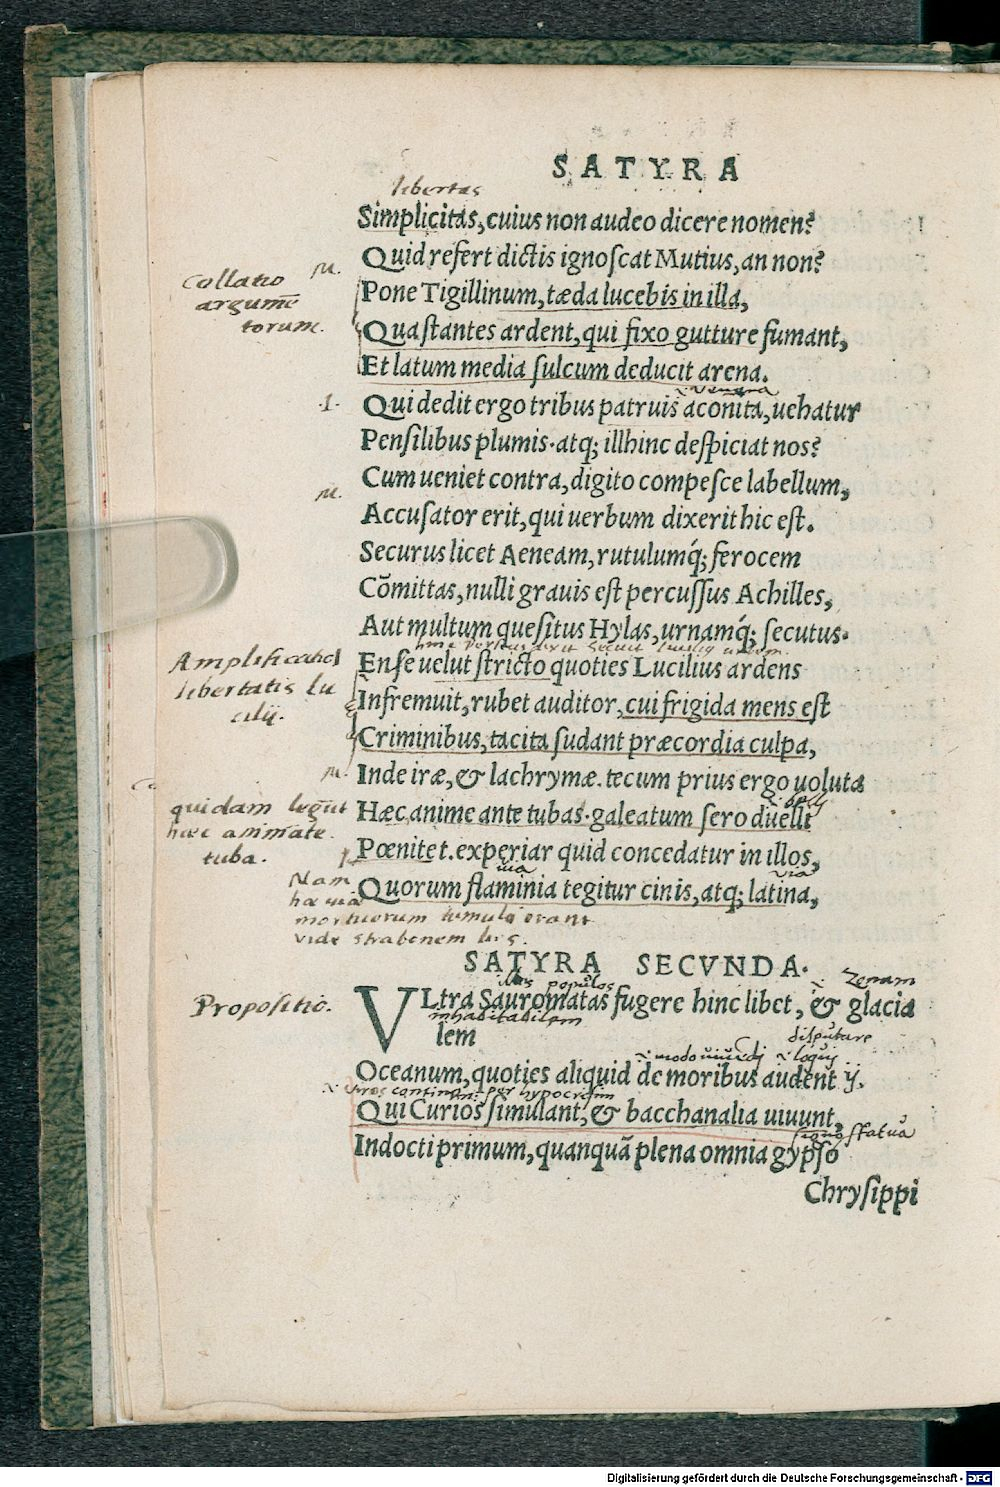 SATYRA
libertas
Simplicitas, cuius non audeo dicere nomen?
Quid refert dictis ignoſcat Mutius, an non?
M.
Collatio
argumē
torum.
Pone Tigillinum, tæda lucebis in illa,
Qua ſtantes ardent, qui fixo gutture fumant,
Et latum media ſulcum deducit arena.
venena
.1. Qui dedit ergo tribus patruis aconita, uehatur
Penſilibus plumis· atq; illhinc deſpiciat nos?
Cum ueniet contra, digito compeſce labellum,
M.
Accuſator erit, qui uerbum dixerit hic eſt.
Securus licet Aeneam, rutulumq́; ferocem
Cōmittas, nulli grauis eſt percuſſus Achilles,
Aut multum queſitus Hylas, urnamq́; ſecutus·
Amplificatio
libertatis Lu
cilij.
Enſe uelut ſtricto quoties Lucilius ardens
Infremuit, rubet auditor, cui frigida mens eſt
Criminibus, tacita ſudant præcordia culpa,
M. Inde iræ, & lachrymæ. tecum prius ergo uoluta
belli
quidam legūt
hæc animāte
tuba.
Hæc anime ante tubas· galeatum ſero duelli
Pœnitet. experiar quid concedatur in illos,
via via
Quorum flaminia tegitur cinis, atq; latina,
Nam
hac via
mortuorum tumuli erant
vide strabonem
SATYRA SECVNDA·
populos Zenam
Propositio.
VLtra Sauromatas fugere hinc libet, & glacia
inhabitabilem
lem
disputare
loqui
Oceanum, quoties aliquid de moribus audent ij.
per hypocrisim
Qui Curios ſimulant, & bacchanalia uiuunt,
statua
Indocti primum, quanquā plena omnia gypſo
Chryſippi
Digitalisierung gefördert durch die Deutsche Forschungsgemeinschaft - DFG